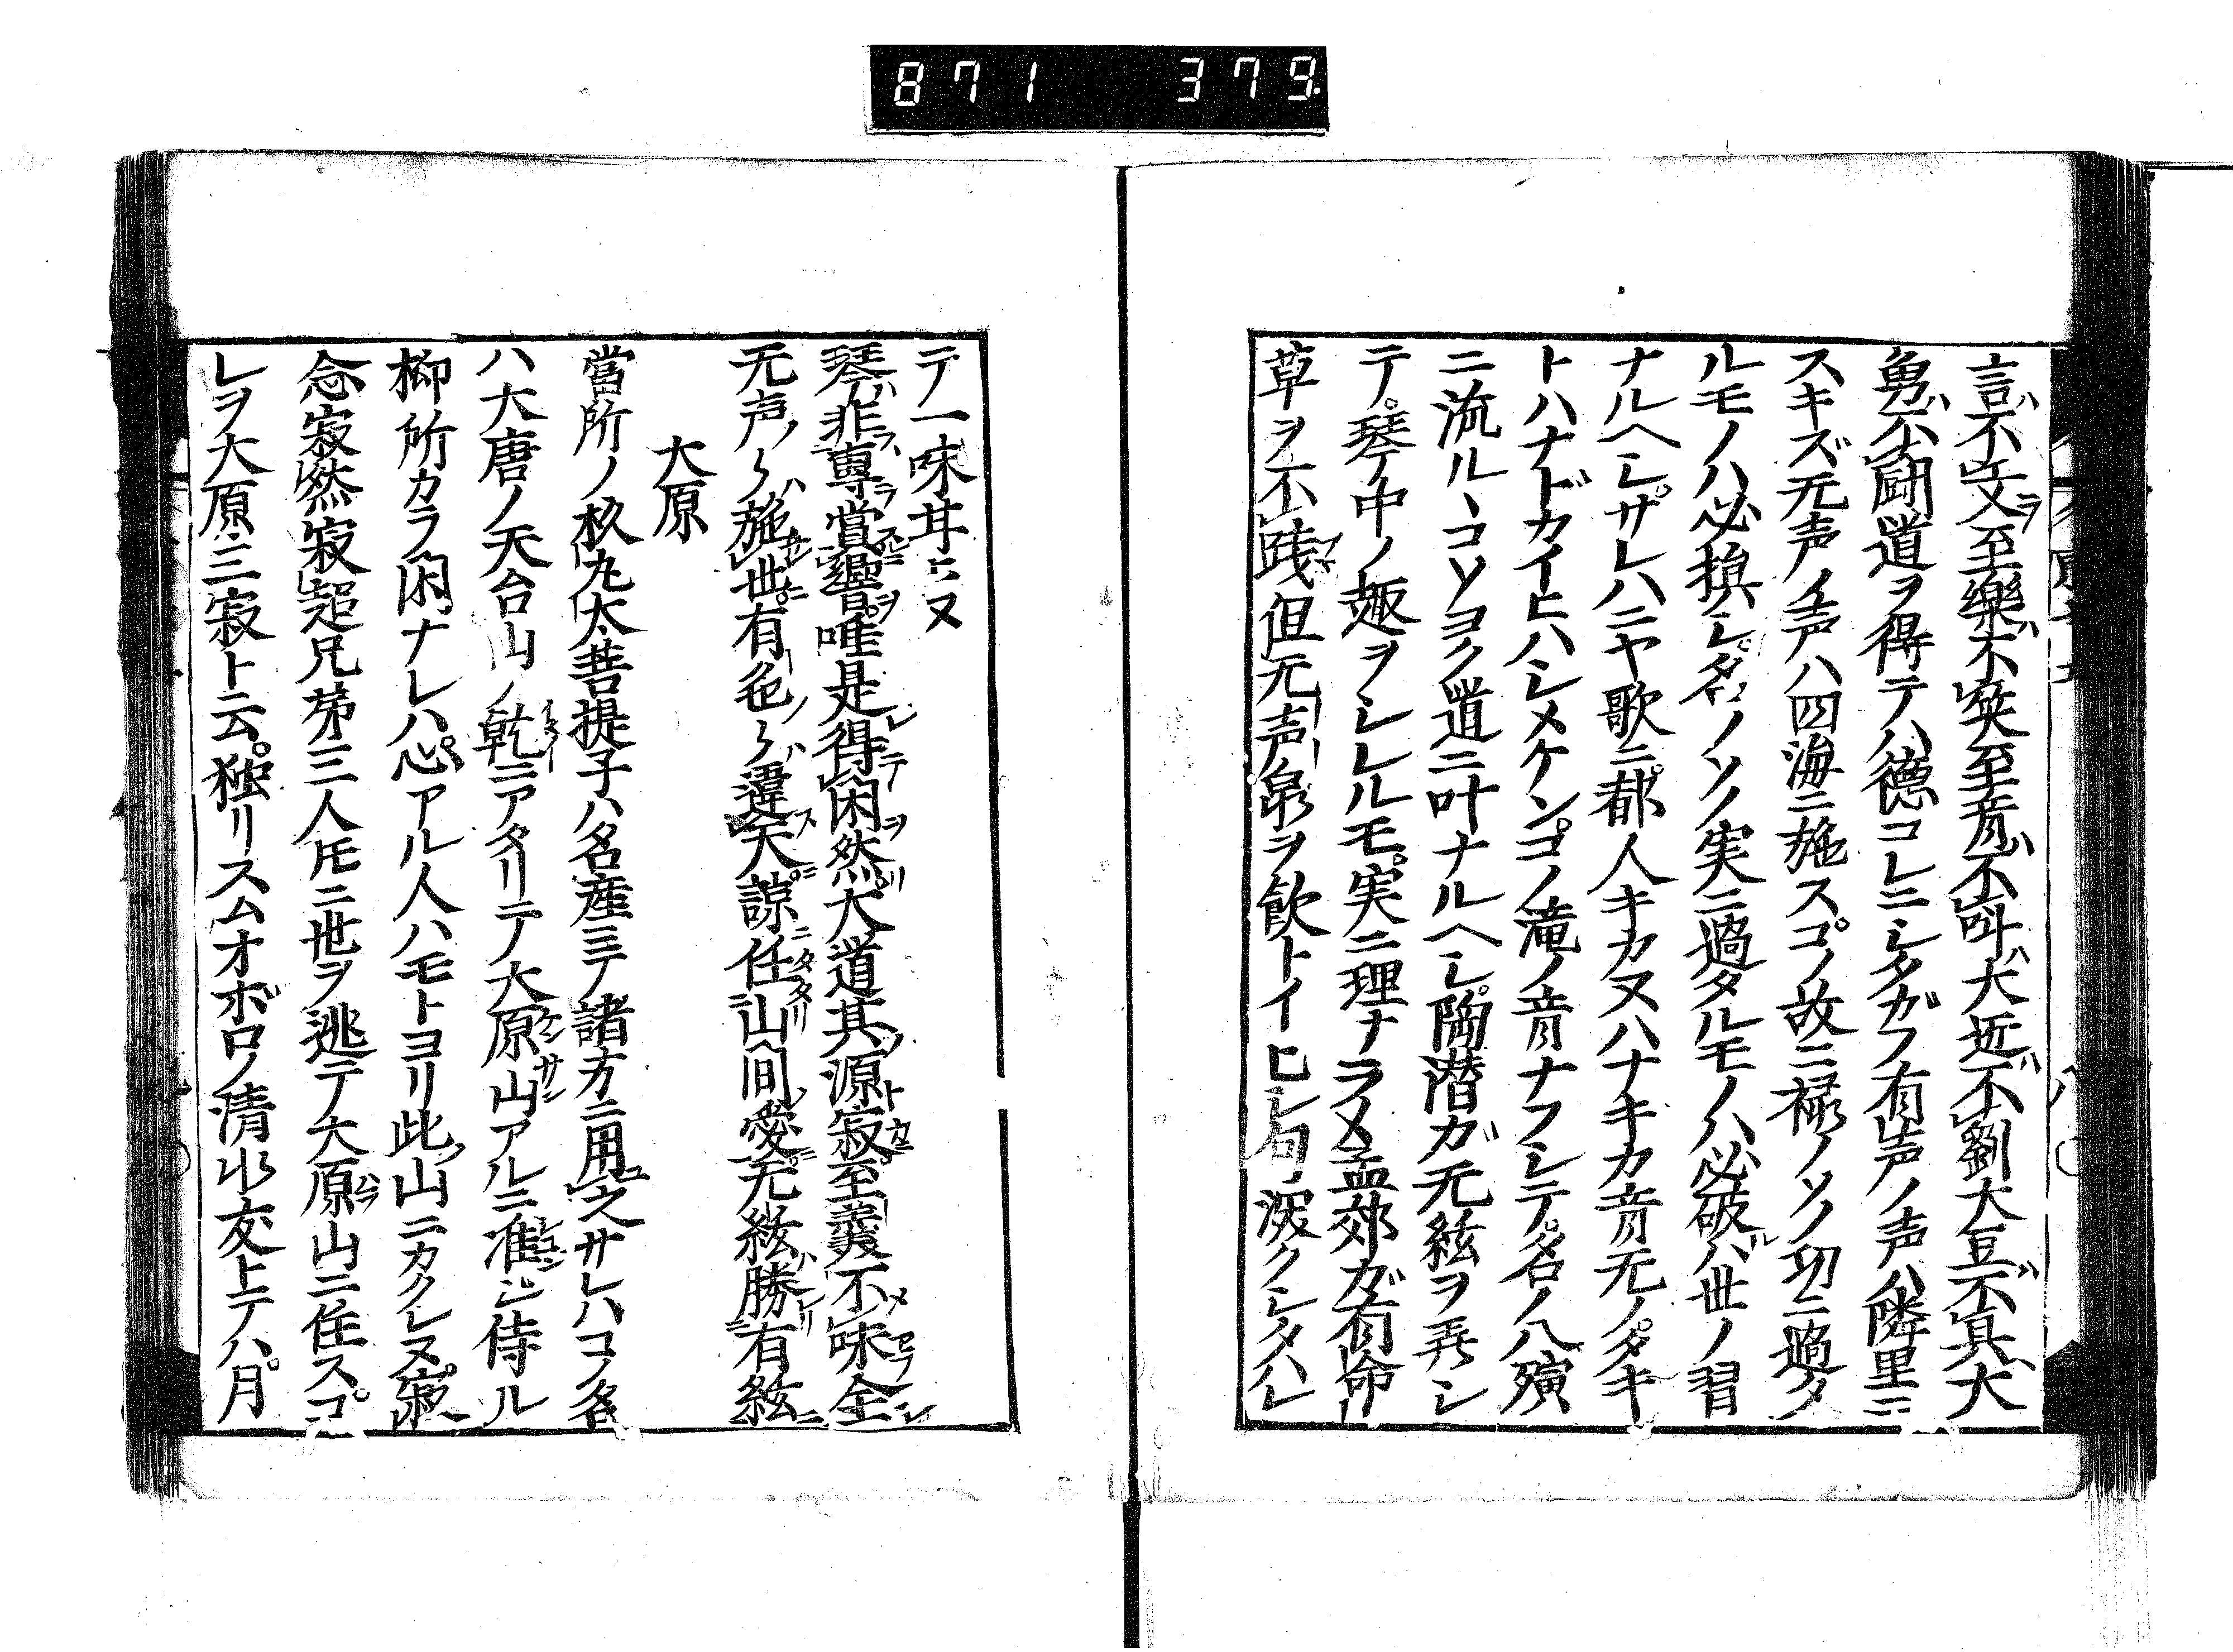 871 379
言ハ不文ヲ至樂ハ不笑至音ハ不叫大近ハ不劉大豆ハ不具大
勇ハ不闘道ヲ得テハ徳コレニシタガフ有声ノ声ハ隣里ニ
スキズ无声ノ声ハ四海ニ施スコノ故ニ禄ノソノ功ニ過タ
ルモノハ必損シ名ノソノ実ニ過タルモノハ必破ル世ノ習
ナルヘシサレハニヤ歌ニ都人キカヌハナキカ音无ノタキ
トハナドカイヒハシメケンコノ滝ノ音ナフシテ名ノ八殯
ニ流ルヽコソヨク道ニ叶ナルヘシ陶潜ガ无絃ヲ弄シ
テ琴ノ中ノ趣ヲシレルモ実ニ理ナラメ孟郊ガ有命
草ヲ不践但无声泉ヲ飲トイヒシ句深クシタハレ
テ一味丼ニヌ
琴ハ非専賞響唯是得閑然大道其源寂至義不味全
无声ノハ施世有色ノハ違天諒任山間愛无絃勝有絃
大原
當所ノ杦丸太菩提子ハ名産ニテ諸方ニ用之サレハコノ名
ハ大唐ノ天台山ノ乾ニアタリテ大原山アルニ准シ侍ル
柳所カラ閑ナレハ心アル人ハモトヨリ此山ニカクレヌ寂
念寂然寂超兄弟三人圧ニ世ヲ逃テ大原山ニ住スコ
レヲ大原ノ三寂ト云独リスムオボロノ清水友トテハ月